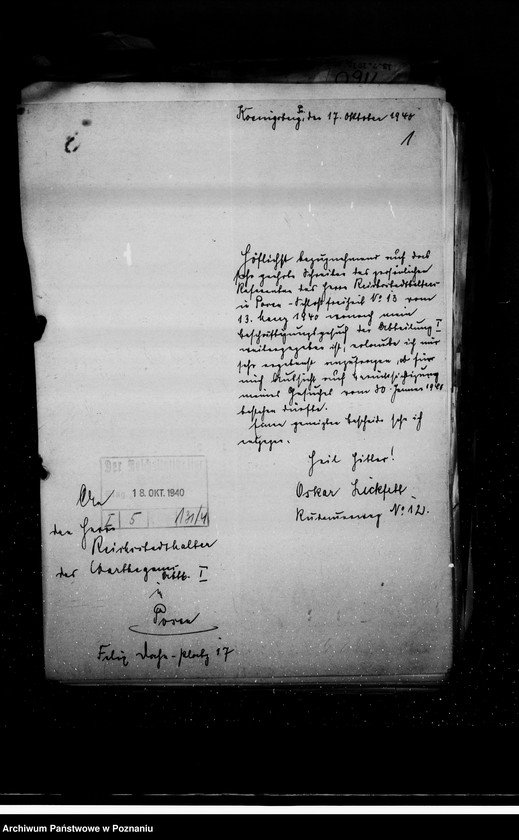 Koenigsberg, den 17. Oktober 1940
1
Höflichst bezugnehmend auf das
sehr geehrte Schreiben des persönlichen
Referenten des Herrn Reichsstatthalters
in Posen - Schloßfreiheit No 13 vom
13. März 1940 wonach mein
Beschäftigungsgesuch der Abteilung I
weitergegeben ist, erlaube ich mir
sehr ergebenst anzufragen, ob für
mich Aussicht auf Berücksichtigung
meines Gesuches vom 30. Januar 1940
bestehen dürfte.
Einem geneigten Bescheide sehe ich
entgegen.
Heil Hitler!
Oskar Lickfett
No 12.
Der Reichsstatthalter
18. OKT. 1940
I 5 131/4
An
den Herrn
Reichsstatthalter
des Warthegaues
Abtlg. I
in
Posen
Felix Dahn-Platz 17
Archiwum Państwowe w Poznaniu